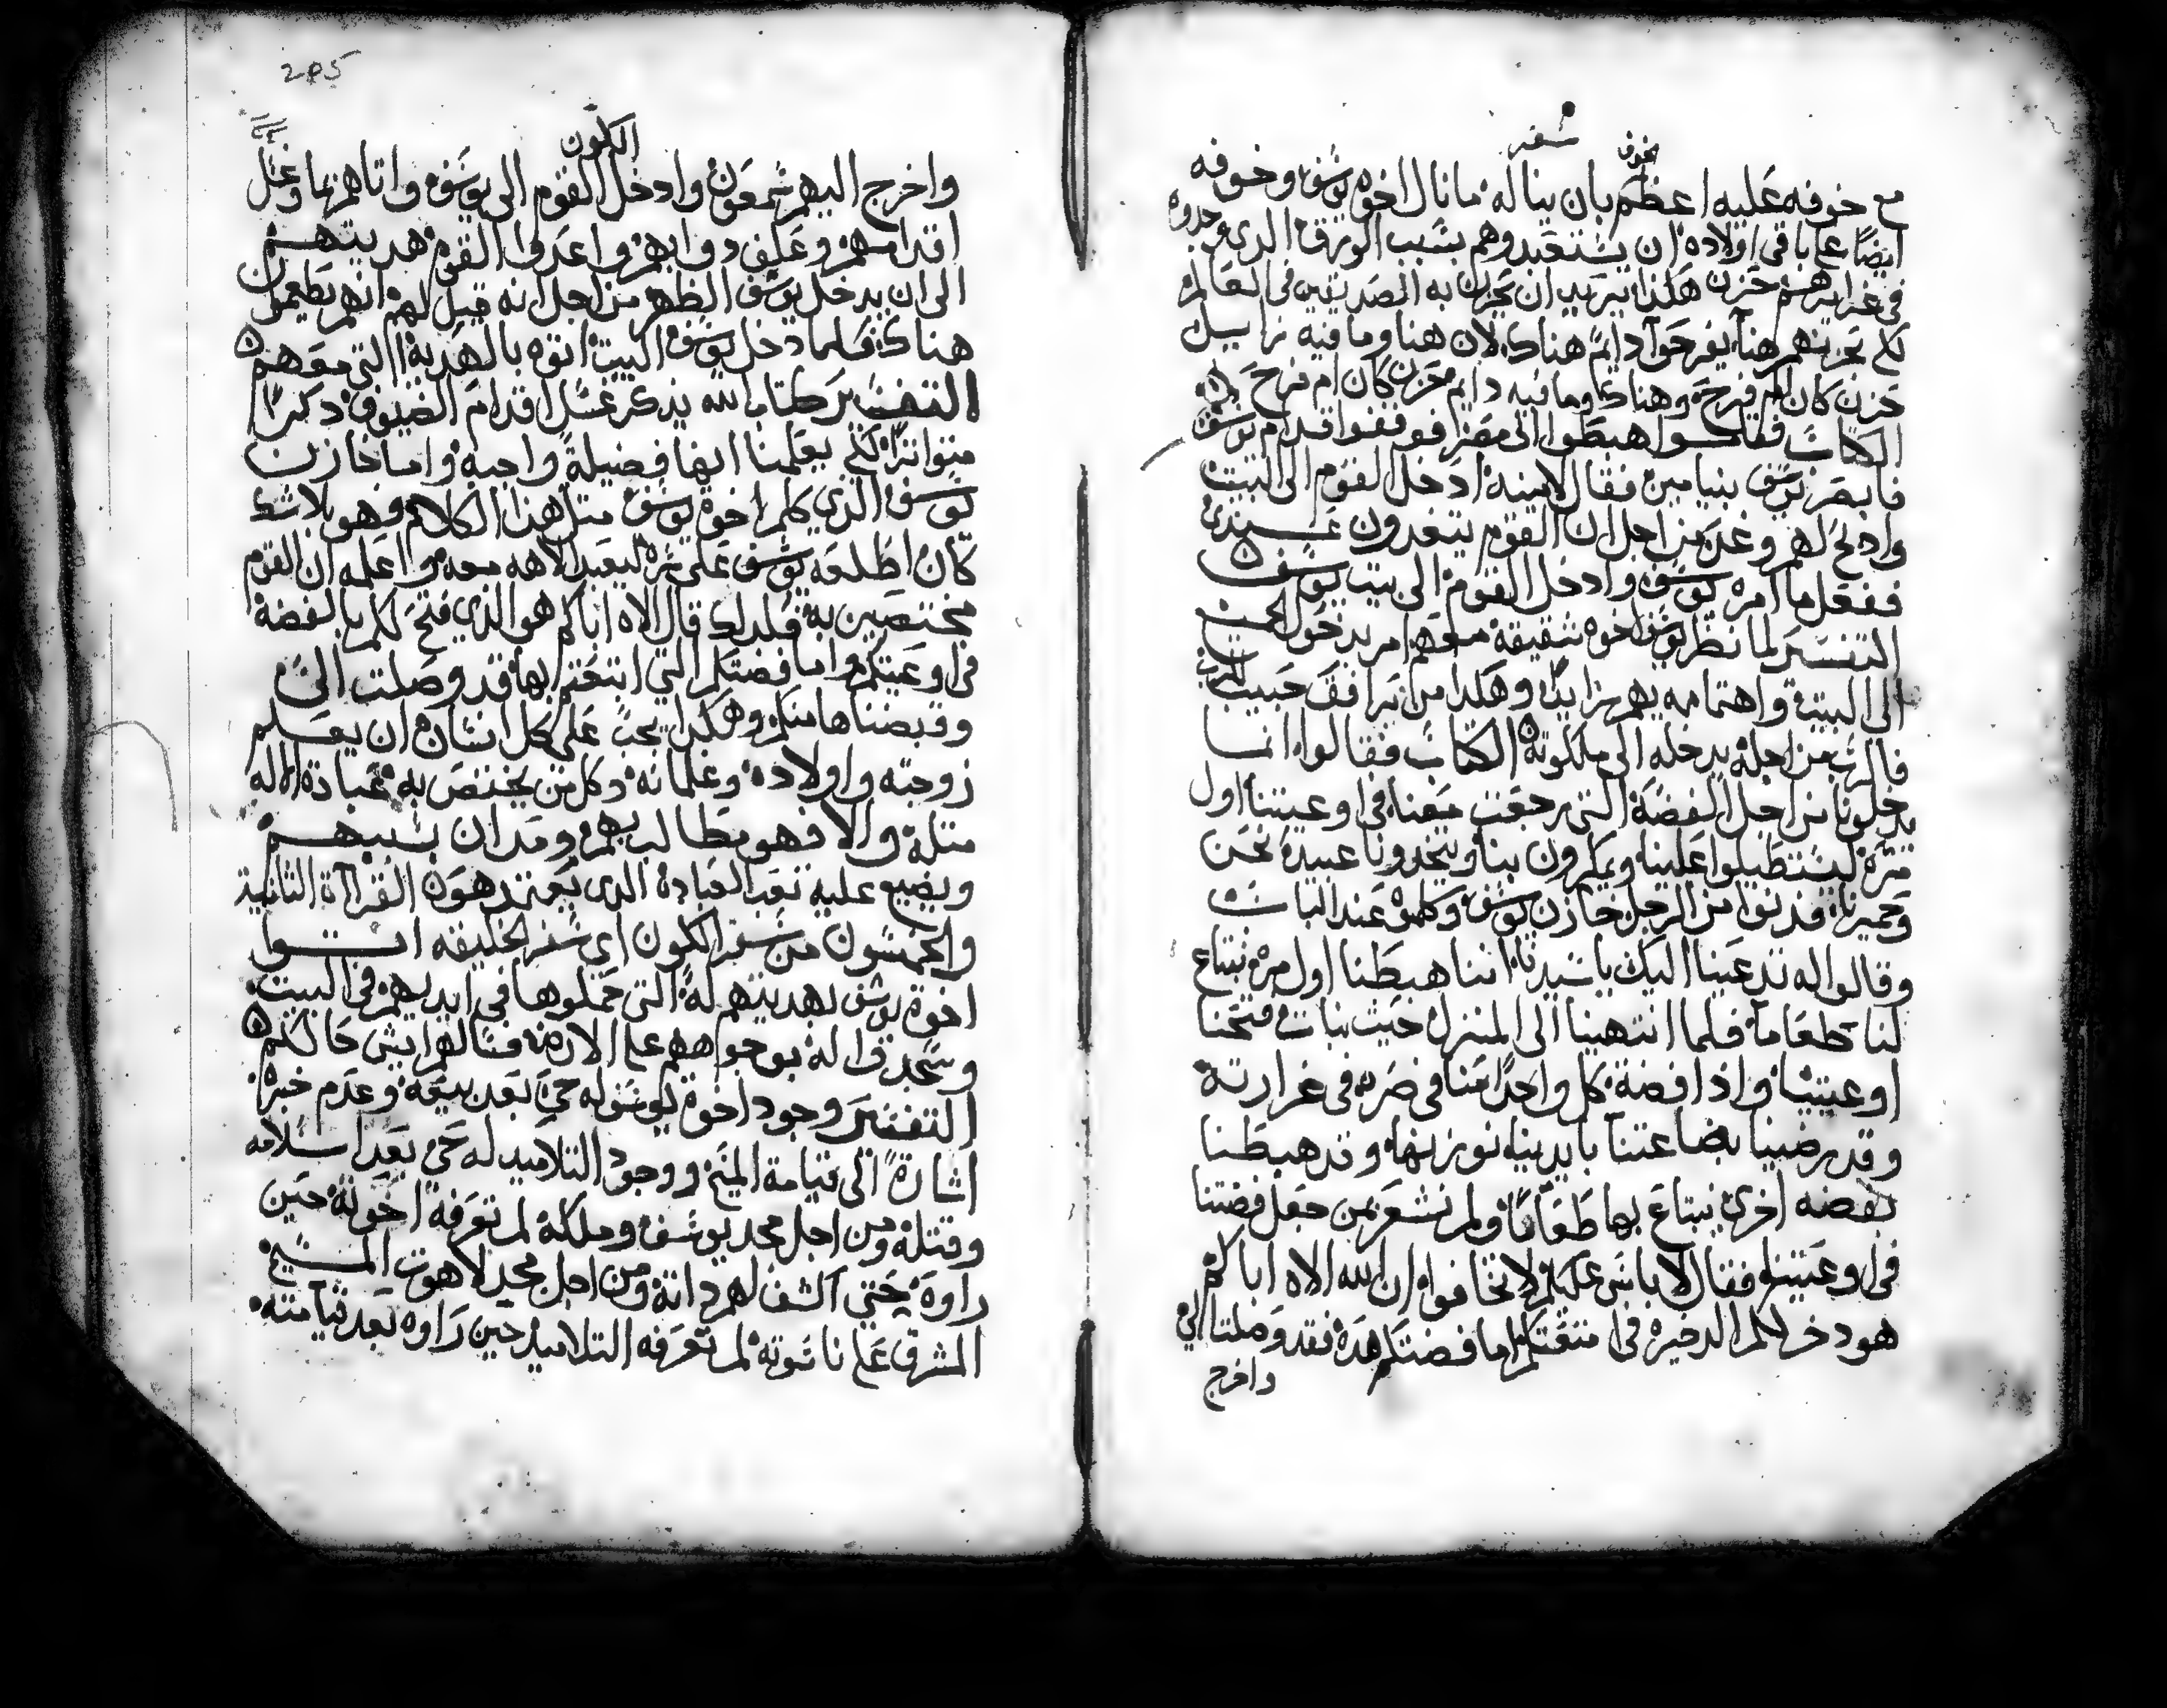 سفر
بخوف
مع خوفه عليه اعظم بان يناله ما نال اخوه يوسف وخوفه
ايضا على باقي اولاده ان يستعبدوهم بسبب الورق الذي وجدوه
في غرايرهم حزن هكذا يريد ان يحزن به الصديقين في العالم
لكي يحزنهم هنا يفرحوا دايما هناك لان هنا وما فيه زايل
حزن كان ام فرح وهناك وما فيه دايم حزن كان ام فرح
الكتاب فقاموا هبطوا الى مصر فوقفوا قدام يوسف
فابصر يوسف بنيامين فقال لامينه ادخل القوم الى البيت
واذبح لهم وعد من اجل ان القوم يتغدون عندي
ففعل ما امره يوسف وادخل القوم الى بيت يوسف
التفسير لما نظر يوسف اخوه شقيقه معهم امر بدخول الجميع
الى البيت واهتمامه بهم زايدا وهكذا من يرافق حبيب الرب
فالرب من اجله يدخله الى ملكوته الكتاب فقالوا انما
يدخلونا من اجل الفضة التي رجعت معنا في اوعيتنا اول
مرة ليستطيلوا علينا ويمكرون بنا ويتخذونا عبيدة نحن
وحميرنا فدنوا من الرجل خازن يوسف وكلموه عند الباب
وقالوا له نرغب اليك يا سيدنا اننا هبطنا اول مرة نبتاع
لنا طعاما فلما انتهينا الى المنزل حيث نبات فتحنا
اوعيتنا واذا فضة كل واحدا منا في صره في غرارته
وقد رضينا بضاعتنا بايدينا نوزنها وقد هبطنا
بفضه اخرى نبتاع بها طعاما ولم نشعر من جعل فضتنا
في اوعيتنا فقال لا باس عليكم لا تخافوا ان الله الاه اباكم
هو دخر لكم الدخيره في امتعتكم اما فضتكم هذه فقد وصلت الي
واخرج
الكون
واخرج اليهم شمعون وادخل القوم الى يوسف واتاهم بما وغسل
اقدامهم وعلف دوابهم واعدوا القوم هديتهم
الى ان يدخل يوسف الظهر من اجل انه قيل لهم انهم يطعمون
هناك فلما دخل يوسف البيت اتوه بالهدية التي معهم
التفسير كتاب الله يذكر غسل اقدام الضيوف ذكرا
متواترا لكي يعلمنا انها فضيلة واجبه واما خازن
يوسف الذي كلم اخوة يوسف مثل هذا الكلام فهو بلا شك
كان اطلعه يوسف على سره ليعبد الاهه معه واعلمه ان القوم
مختصين به فلذلك قال الاه اباكم هو الذي فتح لكم بالفضة
في اوعيتكم واما فضتكم التي ابتعتم بها قد وصلت الى
وقبضناها منكم وهكذا يجب على كل انسان ان يعلم
زوجته واولاده وغلمانه وكل من يختص به عبادة الاله
مثله والا فهو مطالب بهم ومدان بسببهم
ويضيع عليه تعب العبادة الذي يعتمدهون القراة الثانية
والخمسون من سفر الكون اي سفر الخليقه اتوا
اخوة يوسف بهديتهم له التي حملوها في ايديهم في البيت
وسجدوا له بوجوههم على الارض فسالهم ايش حالكم
التفسير وجود اخوة يوسف له حي بعد بيعه وعدم خبره
اشارة الى قيامة المسيح ووجود التلاميد له حي بعد اسلامه
وقتله ومن اجل مجد يوسف وملكه لم تعرفه اخوته حين
راوه حتى اكشف لهم ذاته ومن اجل مجد لاهوت المسيح
المشرق على ناسوته لم تعرفه التلاميد حين راوه بعد قيامته
205